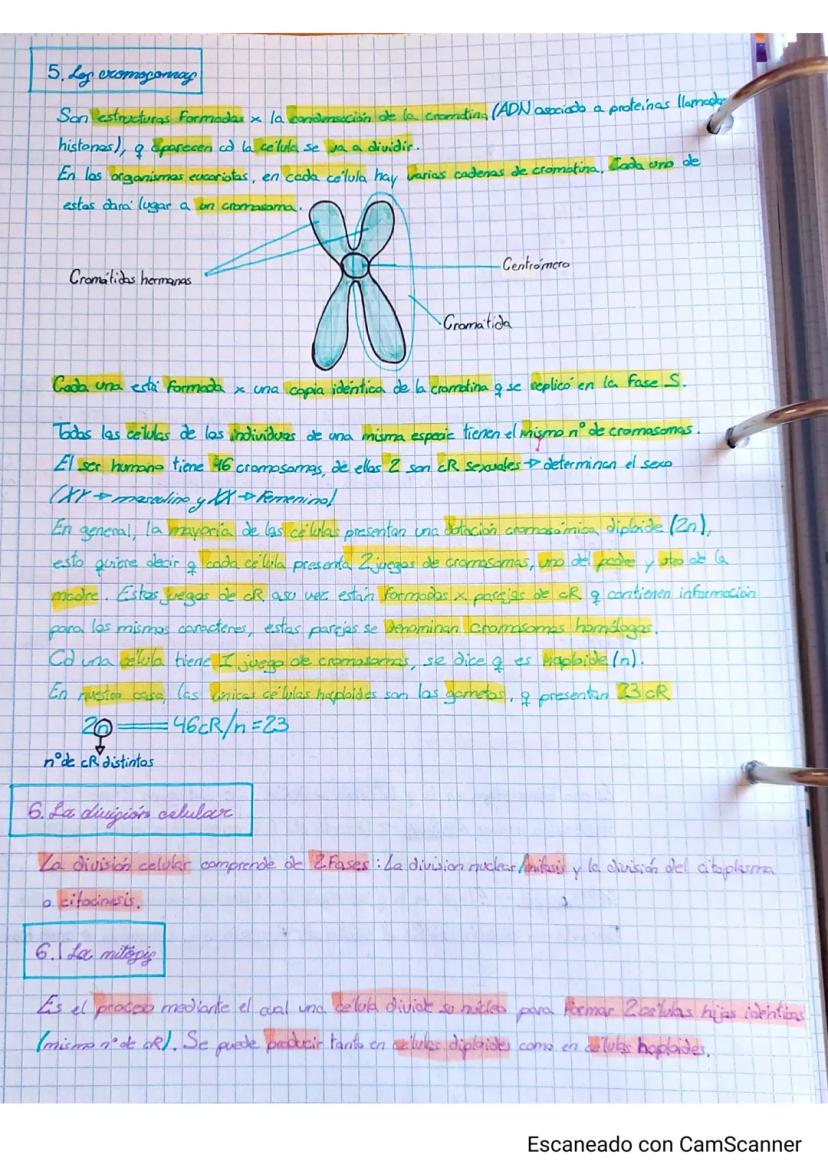 5. Los cromosomas
Son estructuras formadas x la condensación de la cromatina (ADN asociado a proteínas llamadas
histonas), q aparecen cd la célula se va a dividir.
En los organismos eucariotas, en cada célula hay varias cadenas de cromatina. Cada una de
estas dará lugar a un cromosoma.
Cromátidas hermanas
Centrómero
Cromátida
Cada una está formada x una copia idéntica de la cromatina q se replicó en la Fase S.
Todas las células de los individuos de una misma especie tienen el mismo nº de cromosomas.
El ser humano tiene 46 cromosomas, de ellos 2 son cR sexuales → determinan el sexo
(XY → masculino y XX → Femenino)
En general, la mayoría de las células presentan una dotación cromosómica diploide (2n),
esto quiere decir q cada célula presenta 2 juegos de cromosomas, uno del padre y otro de la
madre. Estos juegos de cR a su vez están formados x parejas de cR q contienen información
para los mismos caracteres, estas parejas se denominan cromosomas homólogos.
Cd una célula tiene 1 juego de cromosomas, se dice q es haploide (n).
En nuestro caso, las únicas células haploides son los gametos, q presentan 23 cR
2n = 46cR/n=23
nº de cR distintos
6. La división celular
La división celular comprende de 2 Fases: La division nuclear/mitosis y la división del citoplasma
o citocinesis.
6.1 La mitosis
Es el proceso mediante el cual una célula divide su núcleo para formar 2 células hijas idénticas
(mismo nº de cR). Se puede producir tanto en células diploides como en células haploides.
Escaneado con CamScanner